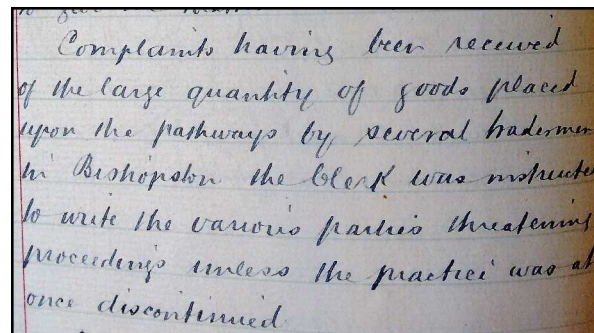 Complaints having been received
of the large quantity of goods placed
upon the pathways by several tradesmen
in Bishopston the Clerk was instructed
to write the various parties threatening
proceedings unless the practice was at
once discontinued